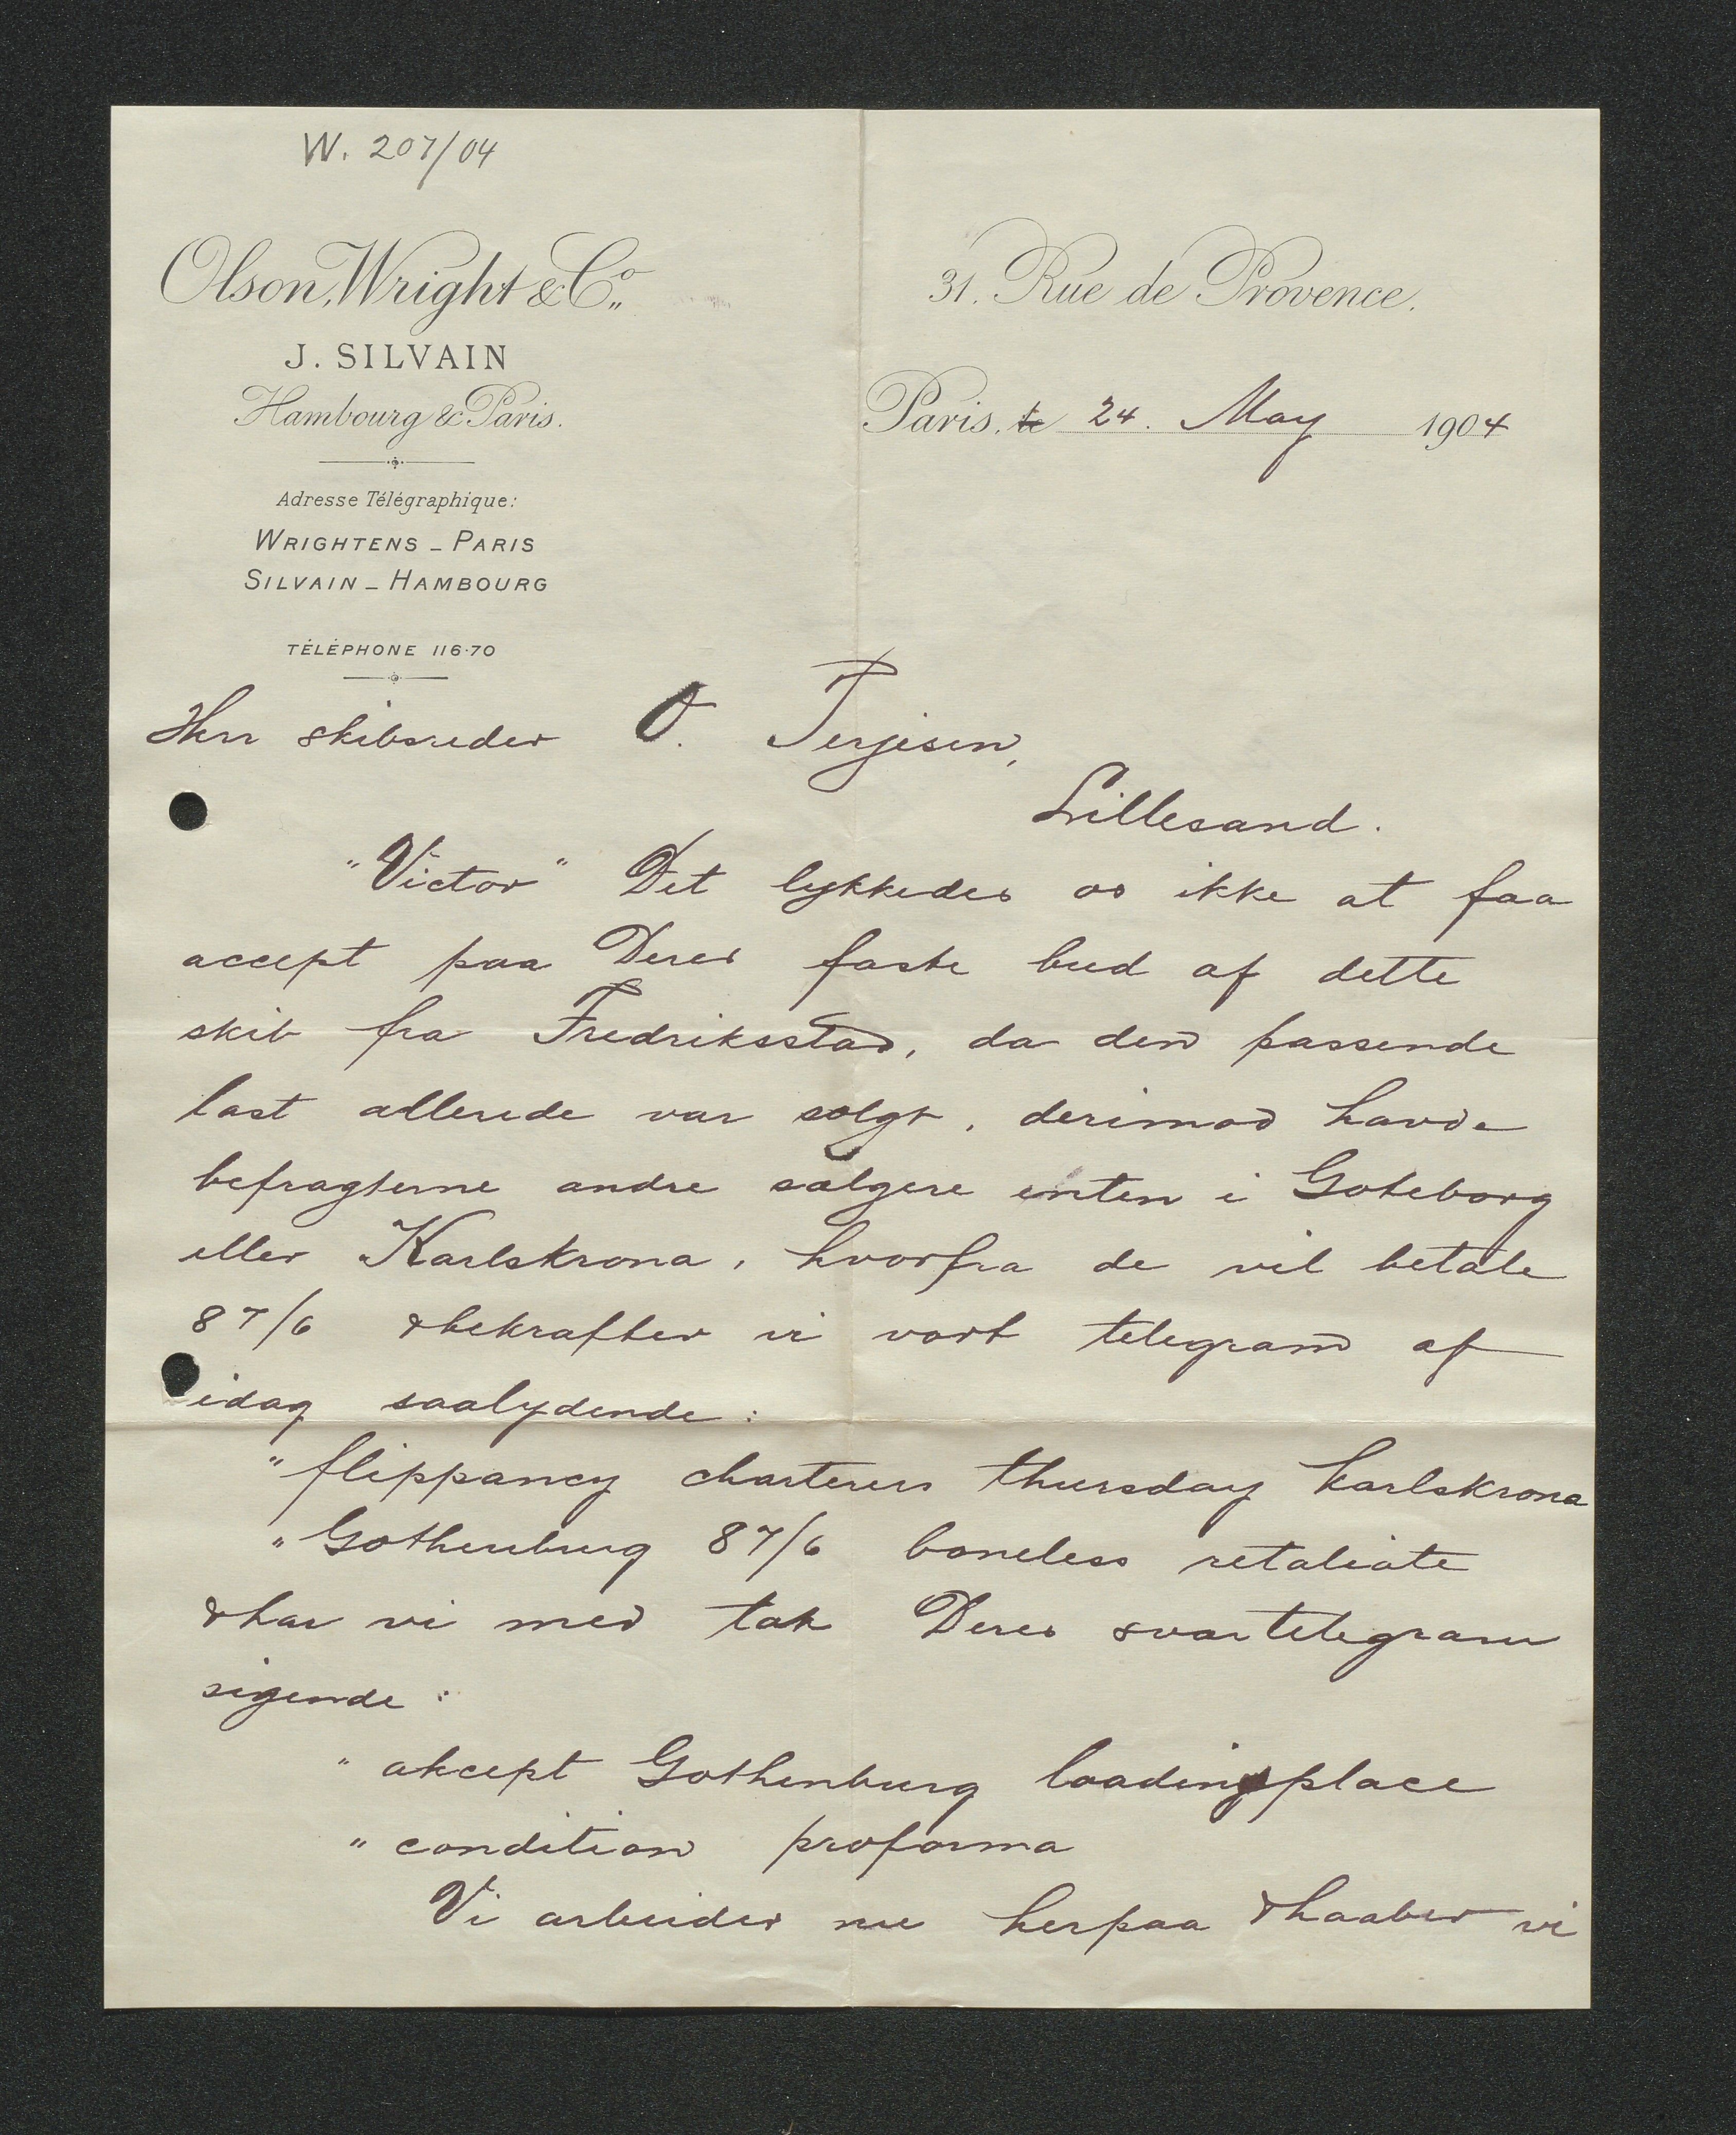 W. 207/04
Olson, Wright & Co.
J. SILVAIN
Hambourg & Paris.
Adresse Télégraphique:
WRIGHTENS _ PARIS
SILVAIN _ HAMBOURG
TÉLÉPHONE 116·70
31. Rue de Provence.
Paris, le 24. May 1904
Herr skibsreder O. Terjesen,
Lillesand.
"Victor" Det lykkedes os ikke at faa
accept paa Deres faste bud af dette
skib fra Fredriksstad, da den passende
last allerede var solgt, derimod havde
befragterne andre sælgere enten i Goteborg
eller Karlskrona, hvorfra de vil betale
87/6 & bekrafter vi vort telegram af
idag saalydende:
"flippancy charterers thursday Karlskrona
"Gothenburg 87/6 boneless retaliate
& har vi med tak Deres svartelegram
sigende:
" akcept Gothenburg loadingplace
" condition proforma
Vi arbeider nu herpaa & haaber vi